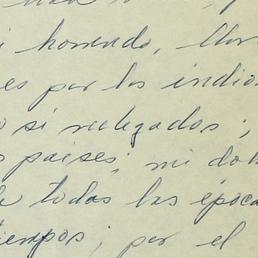 i horrendo,
es por los indio
o si relegados;
s países; mi do
de todas las época
iempos; por el